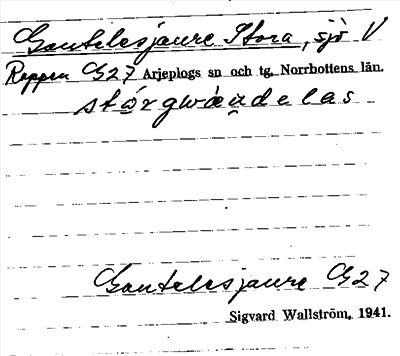 Gautelesjaure Stora, sjö V
Rappen G27 Arjeplogs sn och tg. Norrbottens län.
Gautelesjaure G27
Sigvard Wallström, 1941.